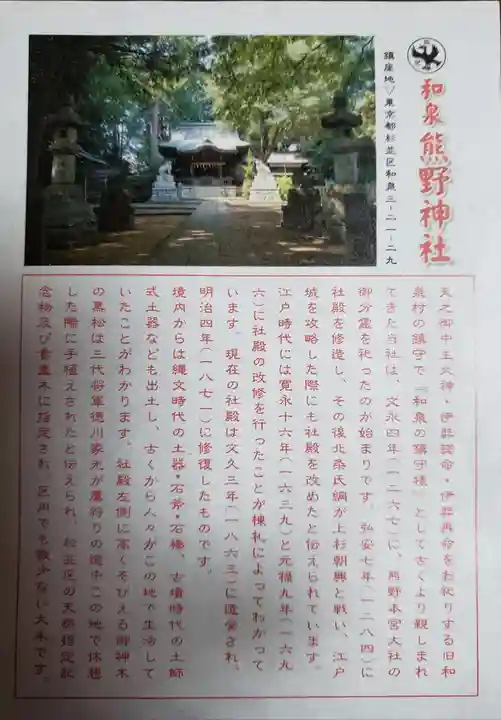 和泉熊野神社
鎮座地▽東京都杉並区和泉三-二一-二九
天之御中主大神・伊弉諾命・伊弉冉命をお祀りする旧和
泉村の鎮守で「和泉の鎮守様」として古くより親しまれ
てきた当社は、文永四年(一二六七)に、熊野本宮大社の
御分霊を祀ったのが始まりです。弘安七年(一二八四)に
社殿を修造し、その後北条氏綱が上杉朝興と戦い、江戸
城を攻略した際にも社殿を改めたと伝えられています。
江戸時代には寛永十六年(一六三九)と元禄九年(一六九
六)に社殿の改修を行ったことが棟札によってわかって
います。現在の社殿は文久三年(一八六三)に造営され、
明治四年(一八七一)に修復したものです。
境内からは縄文時代の土器・石斧・石棒、古墳時代の土師
式土器なども出土し、古くから人々がこの地で生活して
いたことがわかります。社殿左側に高くそびえる御神木
の黒松は三代将軍徳川家光が鷹狩りの途中この地で休憩
した際に手植えされたと伝えられ、杉並区の天然指定記
念物及び貴重木に指定され、区内でも数少ない大木です。